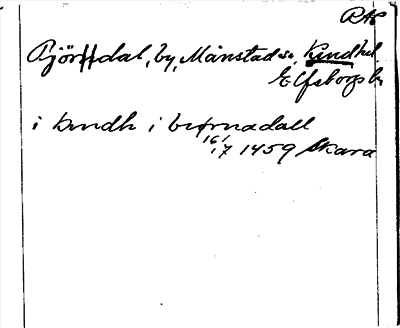 RAP
Björdal, by, Månstad sn, Kind hd
Elfsborgs l.
i kindh i biørnadall
16/7 1459 Skara